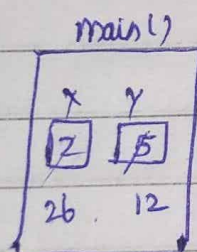 main()
x y
2 5
26 12